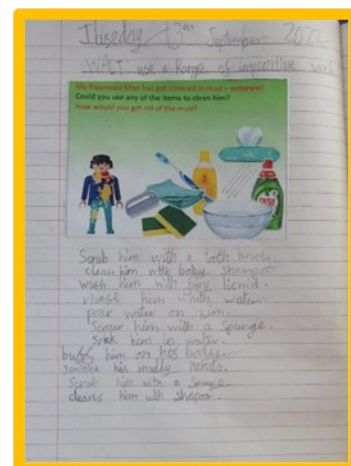 Tuesday 13th September 2022
WALT: use a Range of imperitive verb
My Playmobil Man has got covered in mud –
Could you use any of the items to clean him?
How would you get rid of the mud?
Scrub him with a tooth brush.
clean him with baby shampoo
wash him with fairy licwid.
rinse him with water
pour water on him.
Scour him with a spunge.
Soak him in water.
him on his body.
his muddy hands.
Scrub him with a spunge.
cleans him with shapoo.